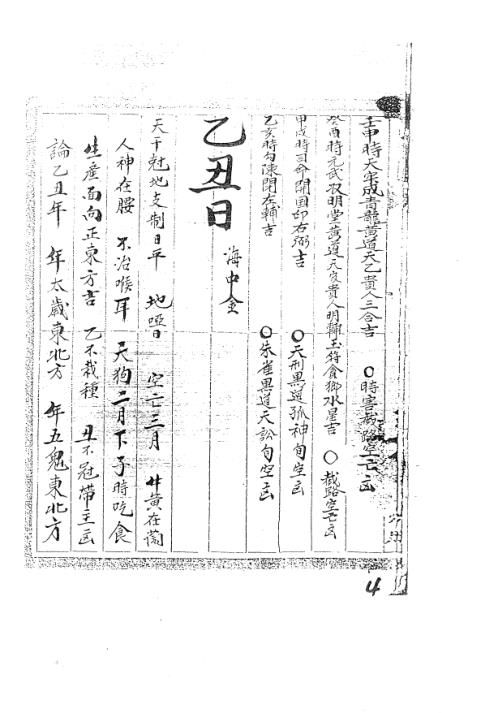 壬申時天牢成青龍黄道天乙貴人三合吉 〇時害截路空亡凶
癸酉時元武明堂黄道天貴人明輔玉符食鄉水星吉 〇截路空亡凶
甲戌時司命開国印右弼吉 〇天刑黒道孤神旬空凶
乙亥時勾陳開左輔吉 〇朱雀黒道天訟旬空凶
乙丑日 海中金
天干尅地支制日平 地啞日 空亡三月 黄在
人神在腰 不治喉耳 天狗二月下子時吃食
生産面向正東方吉 乙不栽種 丑不冠帶主凶
論乙丑年 年太歲東北方 年五鬼東北方
4